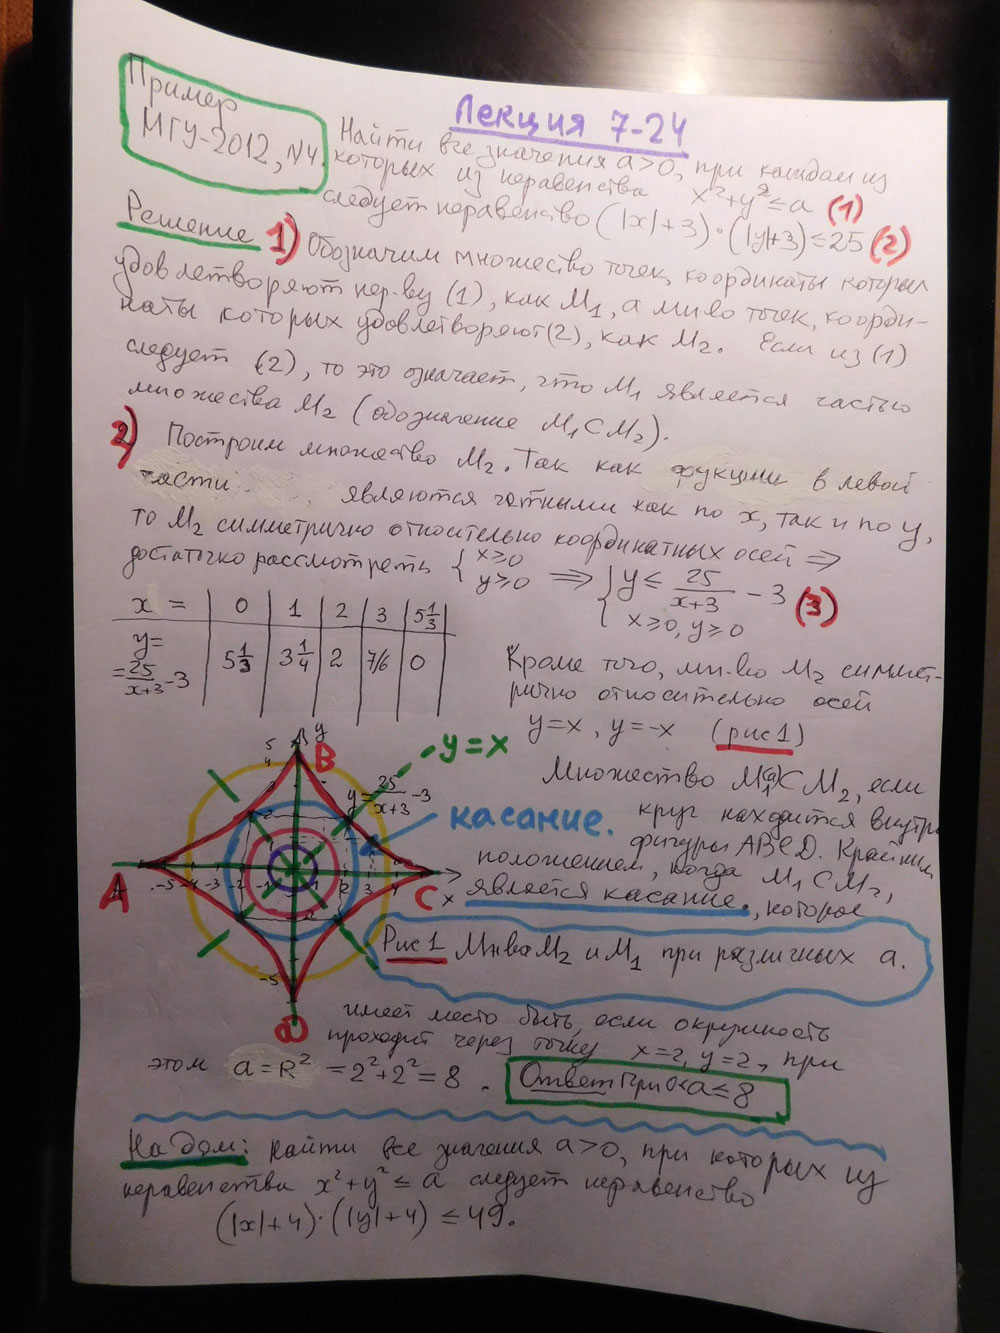 Лекция 7-24
Пример
МГУ-2012, N4.
Найти все значения a>0, при каждом из
которых из неравенства x²+y²≤a (1)
следует неравенство (|x|+3)·(|y|+3)≤25 (2)
Решение 1) Обозначим множество точек, координаты которых
удовлетворяют нер-ву (1), как M₁, а мн-во точек, коорди-
наты которых удовлетворяют (2), как M₂. Если из (1)
следует (2), то это означает, что M₁ является частью
множества M₂ (обозначение M₁⊂M₂).
2) Построим множество M₂. Так как функции в левой
части являются чётными как по x, так и по y,
то M₂ симметрично относительно координатных осей ⇒
достаточно рассмотреть { x≥0 y≥0 ⇒ { y ≤ 25/(x+3) - 3 x≥0, y≥0 (3)
x = | 0 | 1 | 2 | 3 | 5 1/3
y= =25/(x+3)-3 | 5 1/3 | 3 1/4 | 2 | 7/6 | 0
Кроме того, мн-во M₂ симмет-
рично относительно осей
y=x, y=-x (рис 1)
y
5
4
B
y=x
y=25/(x+3)-3
касание.
A
-5 -4 -3 -2 -1 1 2 3
C
x
2
-5
D
Множество M₁(a)⊂M₂, если
круг находится внутри
фигуры ABCD. Крайним
положением, когда M₁⊂M₂,
является касание, которое
Рис 1 Мн-ва M₂ и M₁ при различных a.
имеет место быть, если окружность
проходит через точку x=2, y=2, при
этом a=R²=2²+2²=8. Ответ При 0<a≤8
На дом: Найти все значения a>0, при которых из
неравенства x²+y²≤a следует неравенство
(|x|+4)·(|y|+4)≤49.